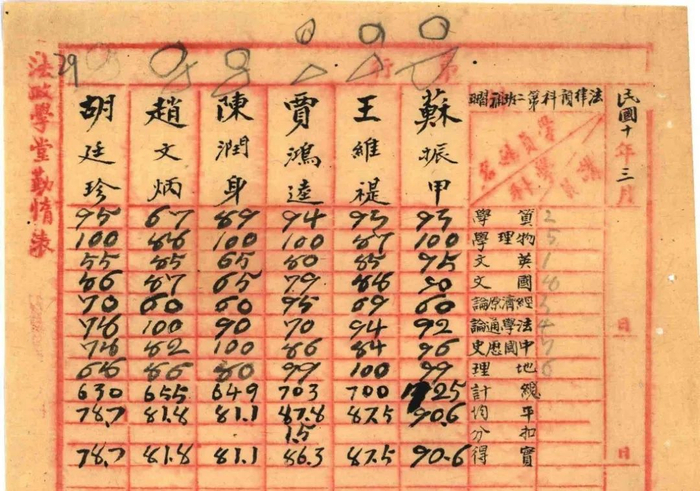 民國十年三月
日
日
法律
科第二班補習
學員姓名
蘇振甲
王維禔
賈鴻逵
陳潤身
趙文炳
胡廷珍
算學 93 93 94 89 67 95
物理學 100 87 100 100 88 100
英文 95 85 80 65 85 55
國文 90 88 79 65 87 86
經濟原論 60 69 95 60 60 70
法學通論 92 94 70 90 100 78
中國歷史 96 84 86 100 82 78
地理 99 100 99 80 86 68
總計 725 700 703 649 655 630
平均 90.6 87.5 87.8 81.1 81.8 78.7
扣分 1.5
實得 90.6 87.5 86.3 81.1 81.8 78.7
29
法政學堂勤惰表